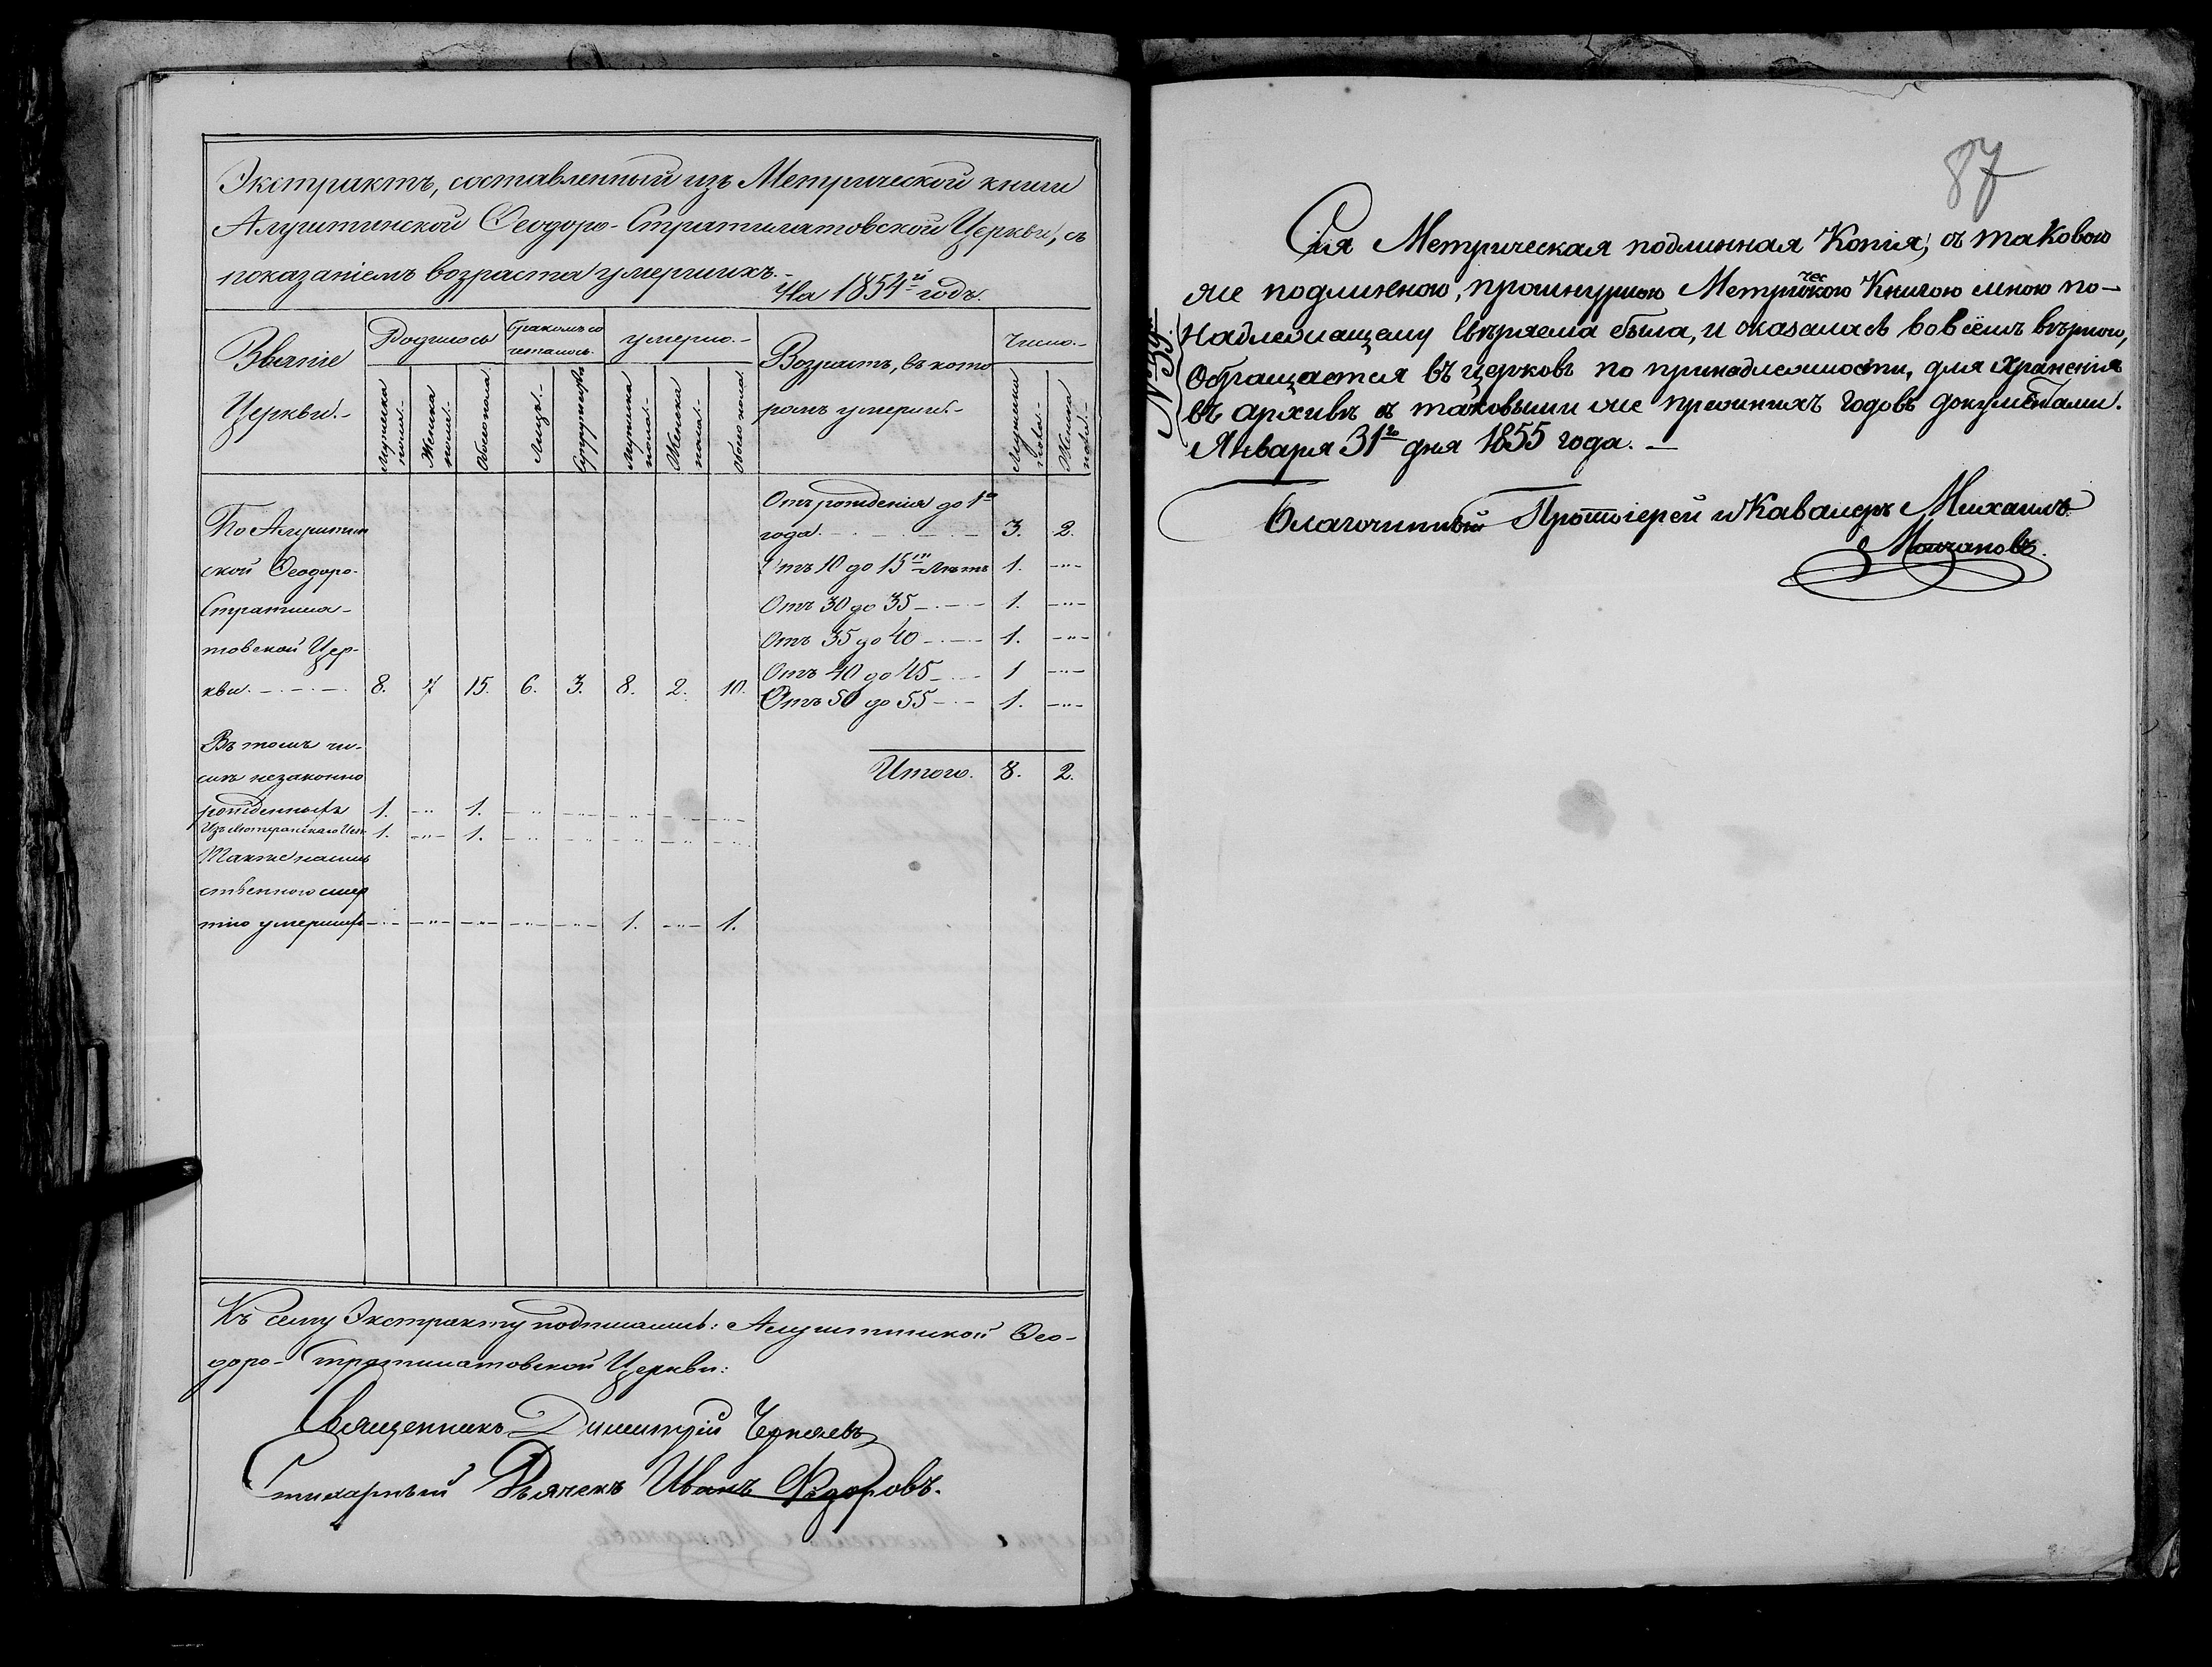 Экстрактъ, составленный изъ Метрической книги
Алуштинской Ѳеодоро-Стратилатовской Церкви, съ
показаніемъ возраста умершихъ.-
На 1854й годъ.
Званіе
Церкви.-
Родилось
Бракомъ со
четалось.
умерло.-
Возрастъ, въ кото
ромъ умерли.-
Число.-
Мужеска
пола.-
Женска
пола.-
Обоего пола
Лицъ.-
Супружествъ
Мужеска
пола.-
Женска
пола.-
Обоего пола
Мужеска
пола.-
Женска
пола.-
По Алуштин
ской Ѳеодоро-
Стратила-
товской Цер-
кви. 8. 7 15. 6. 3. 8. 2. 10.
Отъ рожденія до 1го
года. 3. 2.
Отъ 10 до 15ти лѣтъ 1. -"-
Отъ 30 до 35 1. -"-
Отъ 35 до 40 1. -"-
Отъ 40 до 45 1 -"-
Отъ 50 до 55 1. -"-
Итого. 8. 2.
Въ томъ чи-
слѣ незаконно
рожденныхъ 1. -"- 1. -"- -"- -"- -"- -"-
Изъ Лютеранскаго 1. -"- 1. -"- -"- -"- -"- -"-
Также насиль
ственною смер
тію умершихъ -"- -"- -"- -"- -"- 1. -"- 1.
Къ сему Экстракту подписались: Алуштинской Ѳео-
доро-Стратилатовской Церкви:
Священникъ Димитрій Черняевъ
Стихарный Дьячекъ Иванъ Ѳедоровъ.
87
№ 39.
Сія Метрическая подлинная Копія, съ таковою
же подлинною, прошнурною Метрическою Книгою мною по-
надлежащему свѣряема была, и оказалась во всёмъ вѣрною,
Обращается въ церковь по принадлежности, для храненія
въ архивѣ съ таковыми же прежнихъ годовъ документами.
Января 31го дня 1855 года. -
Благочинный Протоіерей и Кавалеръ Михаилъ